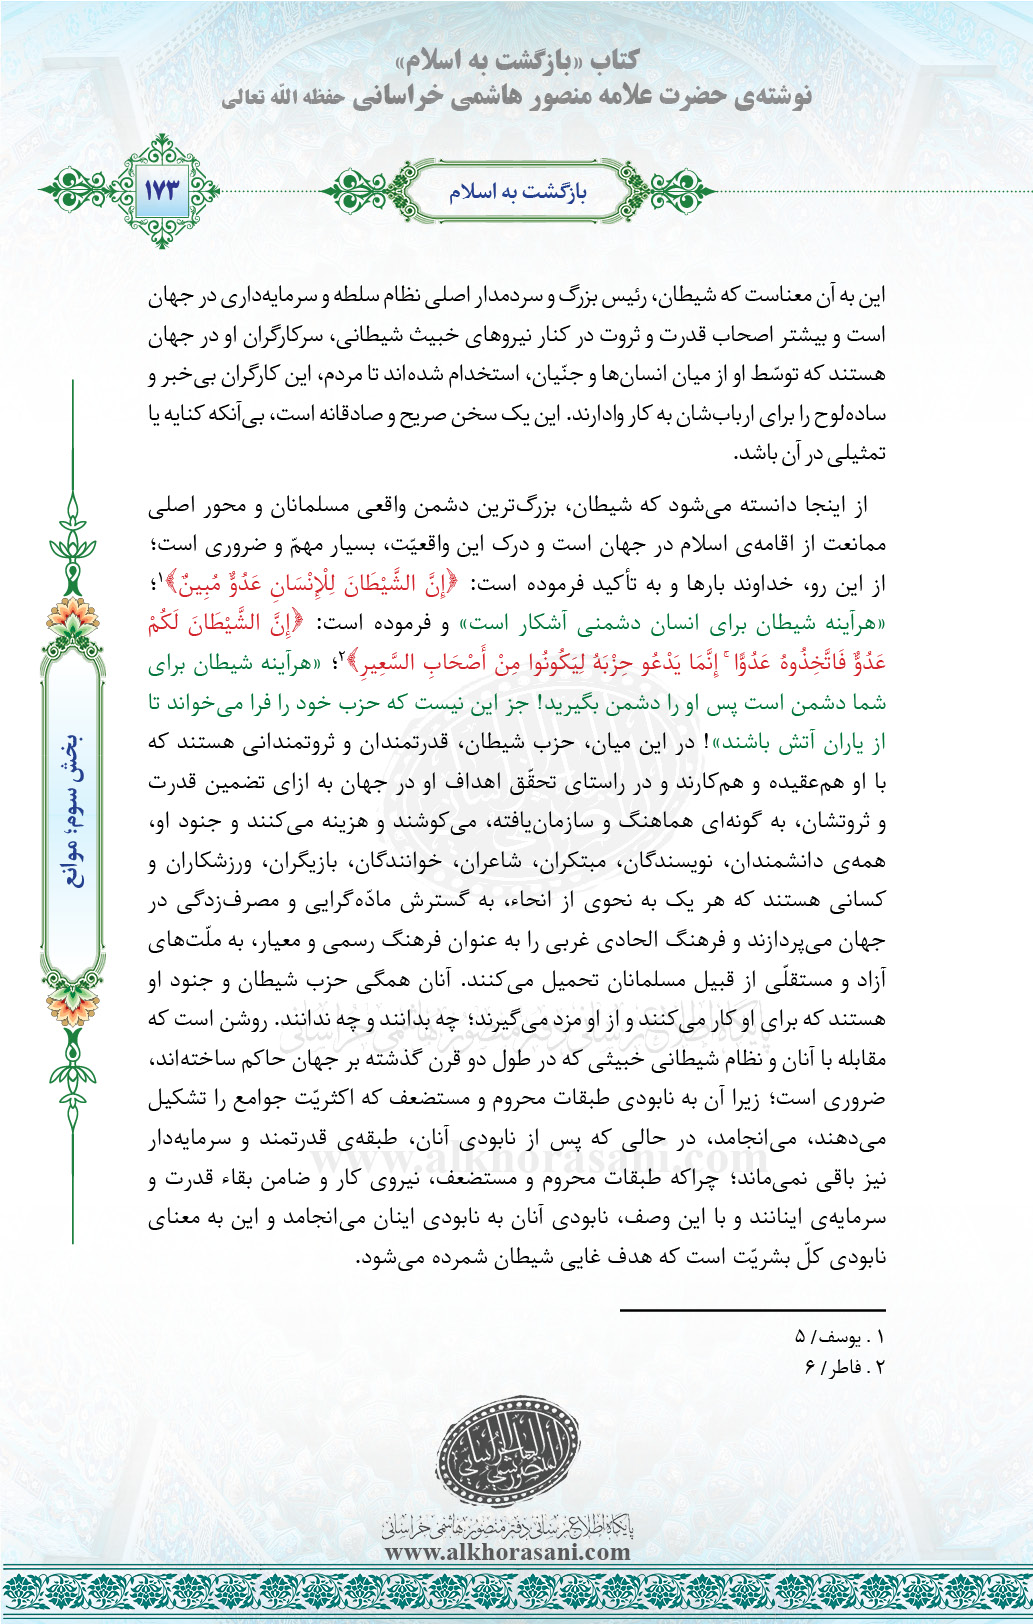 کتاب «بازگشت به اسلام»
نوشته‌ی حضرت علامه منصور هاشمی خراسانی حفظه الله تعالی
بازگشت به اسلام
۱۷۳
این به آن معناست که شیطان، رئیس بزرگ و سردمدار اصلی نظام سلطه و سرمایه‌داری در جهان
است و بیشتر اصحاب قدرت و ثروت در کنار نیروهای خبیث شیطانی، سرکارگران او در جهان
هستند که توسّط او از میان انسان‌ها و جنّیان، استخدام شده‌اند تا مردم، این کارگران بی‌خبر و
ساده‌لوح را برای ارباب‌شان به کار وادارند. این یک سخن صریح و صادقانه است، بی‌آنکه کنایه یا
تمثیلی در آن باشد.
از اینجا دانسته می‌شود که شیطان، بزرگ‌ترین دشمن واقعی مسلمانان و محور اصلی
ممانعت از اقامه‌ی اسلام در جهان است و درک این واقعیّت، بسیار مهمّ و ضروری است؛
از این رو، خداوند بارها و به تأکید فرموده است: ﴿إِنَّ الشَّيْطَانَ لِلْإِنْسَانِ عَدُوٌّ مُبِينٌ﴾۱؛
«هرآینه شیطان برای انسان دشمنی آشکار است» و فرموده است: ﴿إِنَّ الشَّيْطَانَ لَكُمْ
عَدُوٌّ فَاتَّخِذُوهُ عَدُوًّا ۚ إِنَّمَا يَدْعُو حِزْبَهُ لِيَكُونُوا مِنْ أَصْحَابِ السَّعِيرِ﴾۲؛ «هرآینه شیطان برای
شما دشمن است پس او را دشمن بگیرید! جز این نیست که حزب خود را فرا می‌خواند تا
از یاران آتش باشند»! در این میان، حزب شیطان، قدرتمندان و ثروتمندانی هستند که
با او هم‌عقیده و هم‌کارند و در راستای تحقّق اهداف او در جهان به ازای تضمین قدرت
و ثروتشان، به گونه‌ای هماهنگ و سازمان‌یافته، می‌کوشند و هزینه می‌کنند و جنود او،
همه‌ی دانشمندان، نویسندگان، مبتکران، شاعران، خوانندگان، بازیگران، ورزشکاران و
کسانی هستند که هر یک به نحوی از انحاء، به گسترش مادّه‌گرایی و مصرف‌زدگی در
جهان می‌پردازند و فرهنگ الحادی غربی را به عنوان فرهنگ رسمی و معیار، به ملّت‌های
آزاد و مستقلّی از قبیل مسلمانان تحمیل می‌کنند. آنان همگی حزب شیطان و جنود او
هستند که برای او کار می‌کنند و از او مزد می‌گیرند؛ چه بدانند و چه ندانند. روشن است که
مقابله با آنان و نظام شیطانی خبیثی که در طول دو قرن گذشته بر جهان حاکم ساخته‌اند،
ضروری است؛ زیرا آن به نابودی طبقات محروم و مستضعف که اکثریّت جوامع را تشکیل
می‌دهند، می‌انجامد، در حالی که پس از نابودی آنان، طبقه‌ی قدرتمند و سرمایه‌دار
نیز باقی نمی‌ماند؛ چراکه طبقات محروم و مستضعف، نیروی کار و ضامن بقاء قدرت و
سرمایه‌ی اینانند و با این وصف، نابودی آنان به نابودی اینان می‌انجامد و این به معنای
نابودی کلّ بشریّت است که هدف غایی شیطان شمرده می‌شود.
بخش سوم؛ موانع
پایگاه اطلاع رسانی دفتر منصور هاشمی خراسانی
www.alkhorasani.com
۱ . یوسف/ ۵
۲ . فاطر/ ۶
پایگاه اطلاع رسانی دفتر منصور هاشمی خراسانی
www.alkhorasani.com